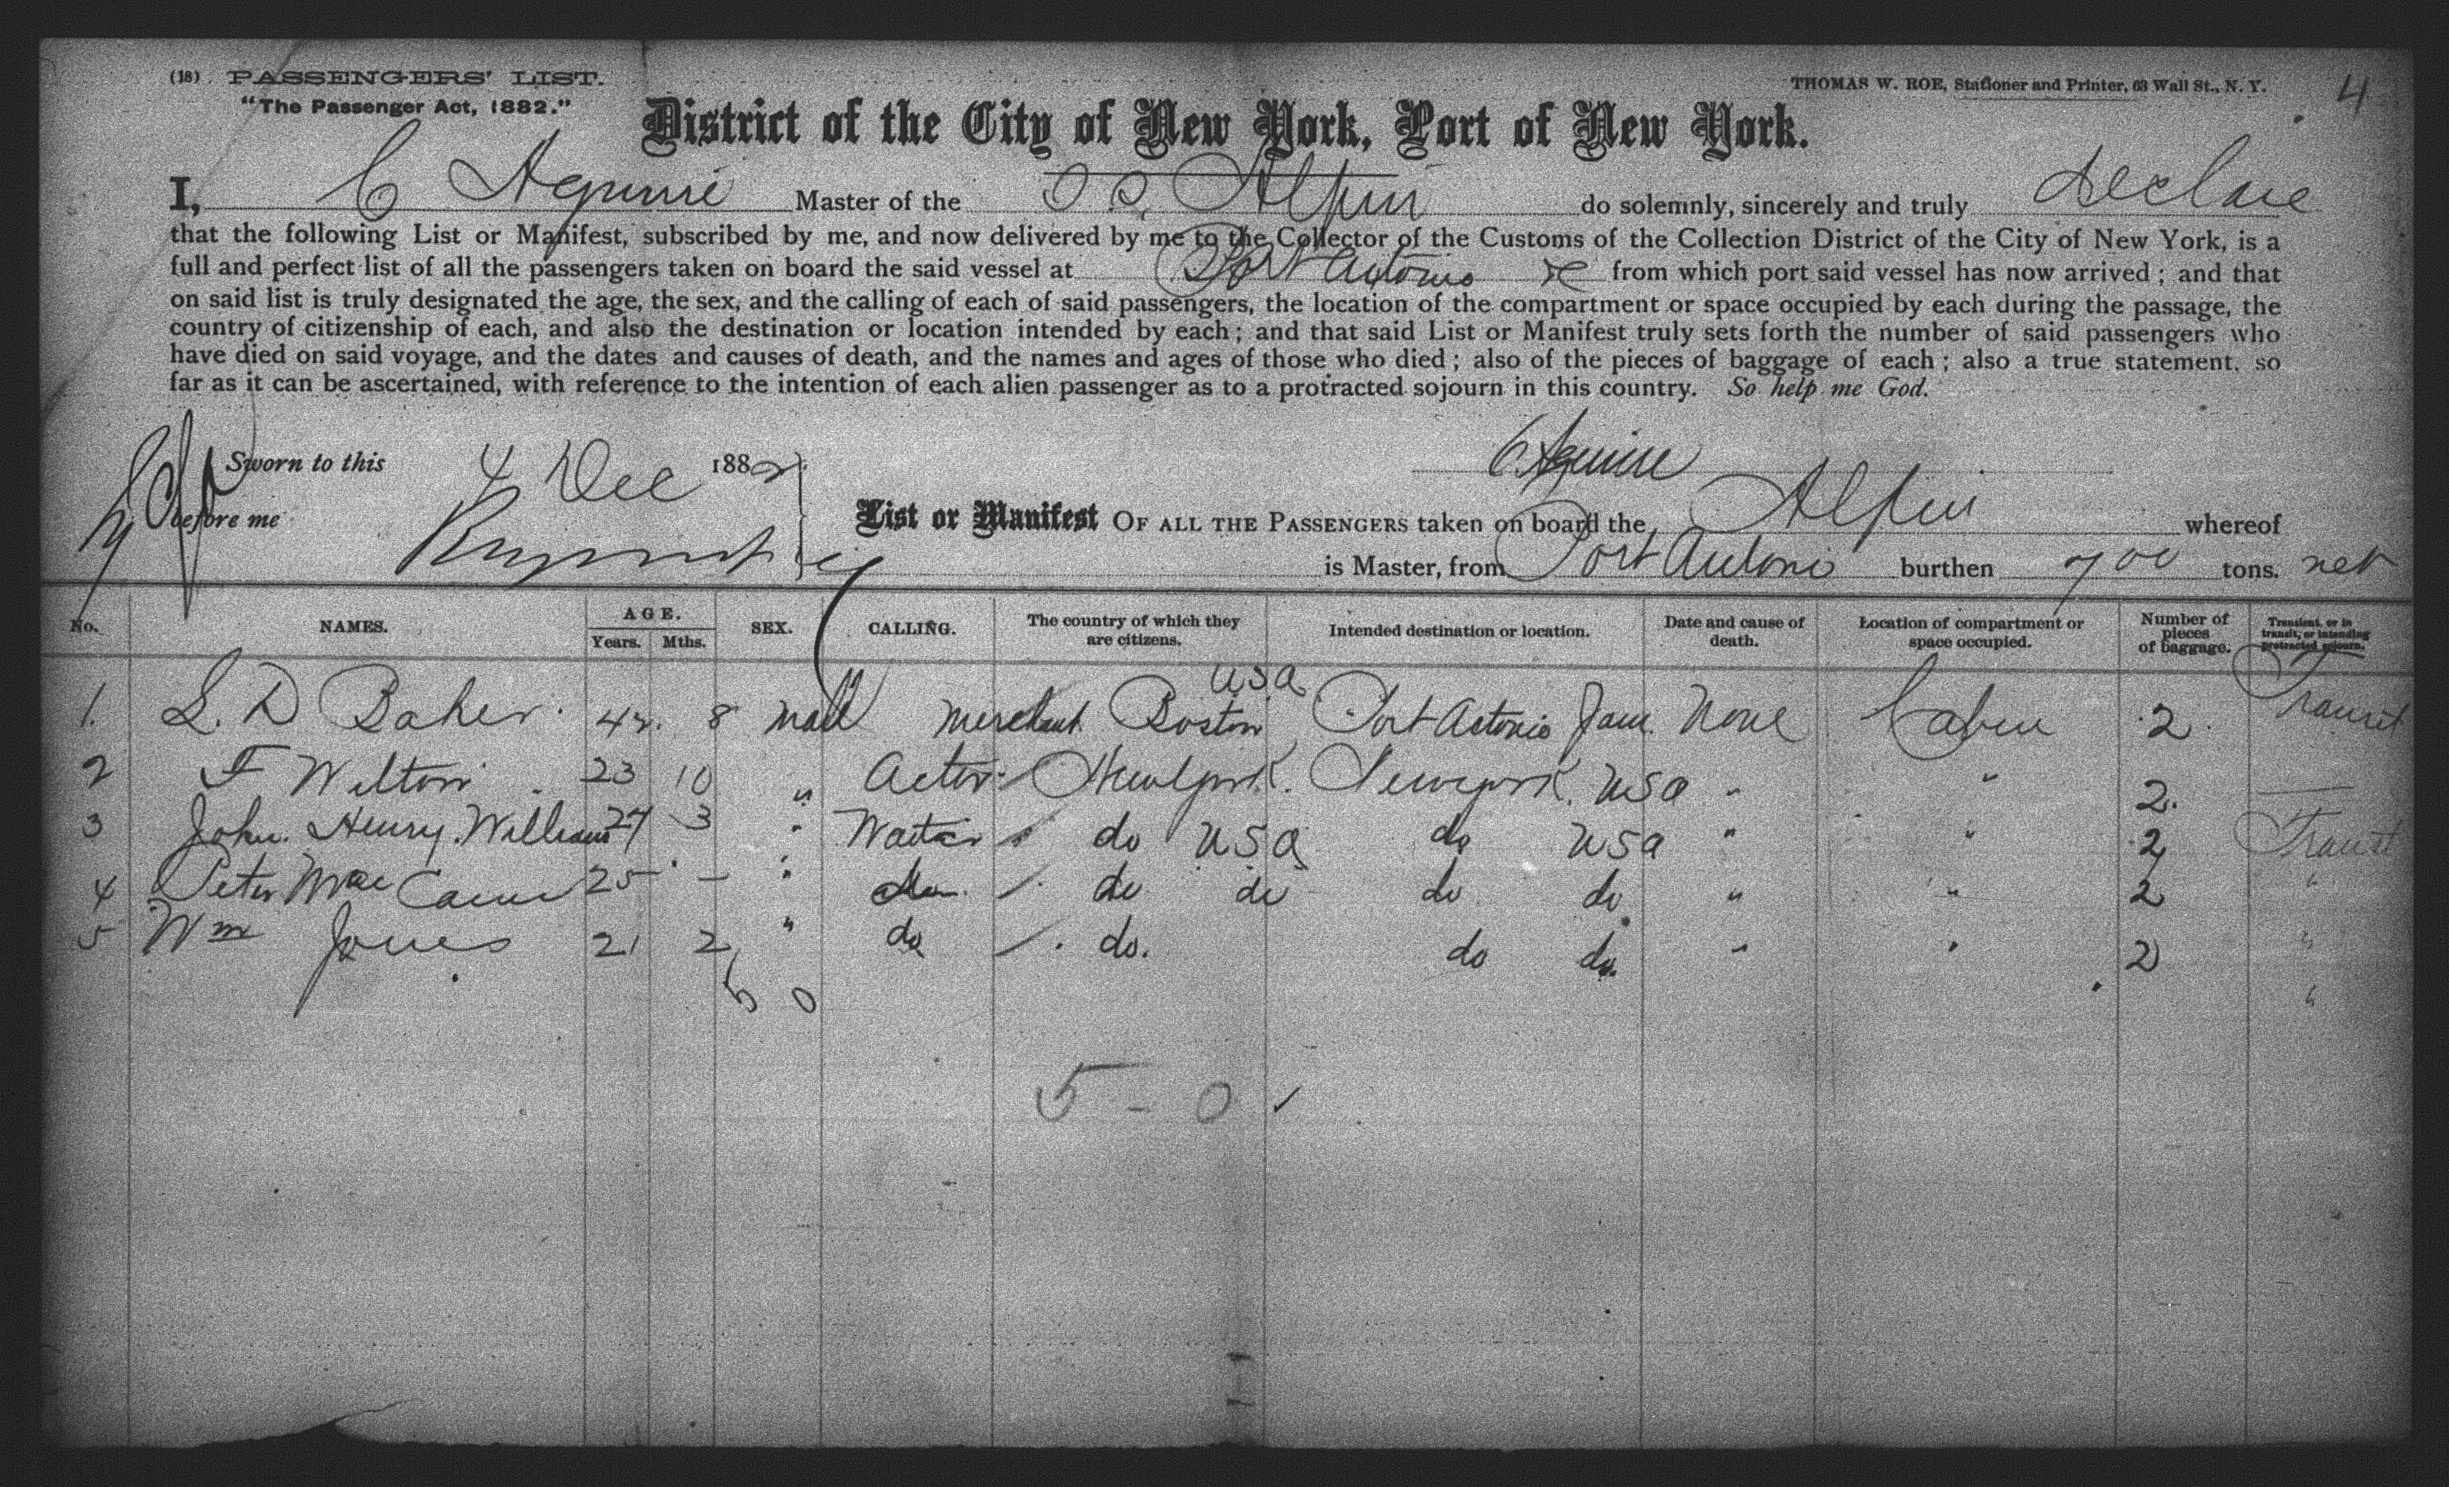 (18) PASSENGERS' LIST.
"The Passenger Act, 1882."
THOMAS W. ROE, Stationer and Printer, 63 Wall St., N. Y.
4
District of the City of New York, Port of New York.
I, C Master of the Alpin do solemnly, sincerely and truly declare
that the following List or Manifest, subscribed by me, and now delivered by me to the Collector of the Customs of the Collection District of the City of New York, is a
full and perfect list of all the passengers taken on board the said vessel at Port Antonio from which port said vessel has now arrived; and that
on said list is truly designated the age, the sex, and the calling of each of said passengers, the location of the compartment or space occupied by each during the passage, the
country of citizenship of each, and also the destination or location intended by each; and that said List or Manifest truly sets forth the number of said passengers who
have died on said voyage, and the dates and causes of death, and the names and ages of those who died; also of the pieces of baggage of each; also a true statement, so
far as it can be ascertained, with reference to the intention of each alien passenger as to a protracted sojourn in this country. So help me God.
Sworn to this 4 Dec 1882
before me
List or Manifest OF ALL THE PASSENGERS taken on board the Alpin whereof
is Master, from Port Antonio burthen 700 tons. net
No. NAMES. AGE. Years. Mths. SEX. CALLING. The country of which they are citizens. Intended destination or location. Date and cause of death. Location of compartment or space occupied. Number of pieces of baggage. Transient, or in transit, or intending protracted sojourn.
1. L. D Baker. 42. 8 male merchant Boston USA Port Antonio Jam. None Cabin 2. Transit
2 F Wilton 23 10 " Actor New york. Newyork. USA " " 2. —
3 John. Henry. Williams 27 3 " Waiter do USA do USA " " 2 Transit
4 Peter Mac 25 — " do de do do " " 2 "
5 Wm Jones 21 2 " do do. do do. " " 2 "
5 0 "
5 - 0 ✓